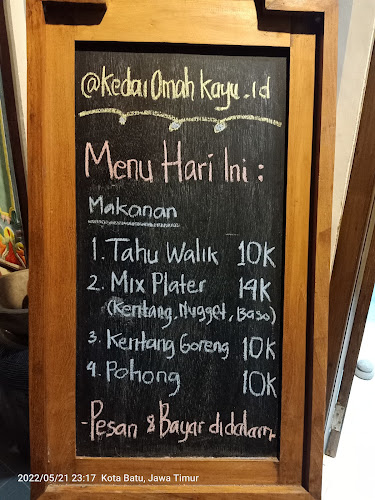 @KedaiOmahKayu.id
Menu Hari Ini :
Makanan
1. Tahu Walik 10K
2. Mix Plater 14K
(Kentang, Nugget, Baso)
3. Kentang Goreng 10K
4. Pohong 10K
-Pesan & Bayar didalam-
2022/05/21 23:17 Kota Batu, Jawa Timur